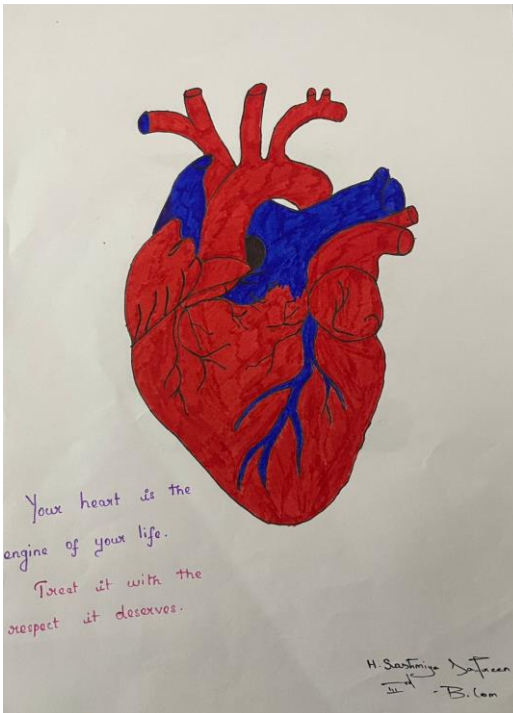 Your heart is the
engine of your life.
Treat it with the
respect it deserves.
H.
III rd - B.Com